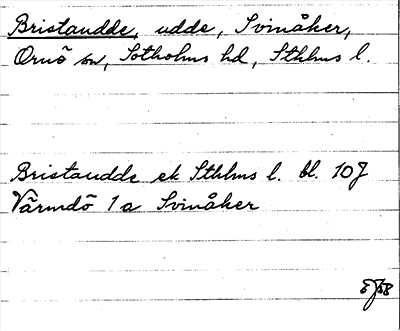 Bristaudde, udde, Svinåker,
Ornö sn, Sotholms hd, Sthlms l.
Bristaudde ek Sthlms l. bl. 107
Värmdö 1a Svinåker